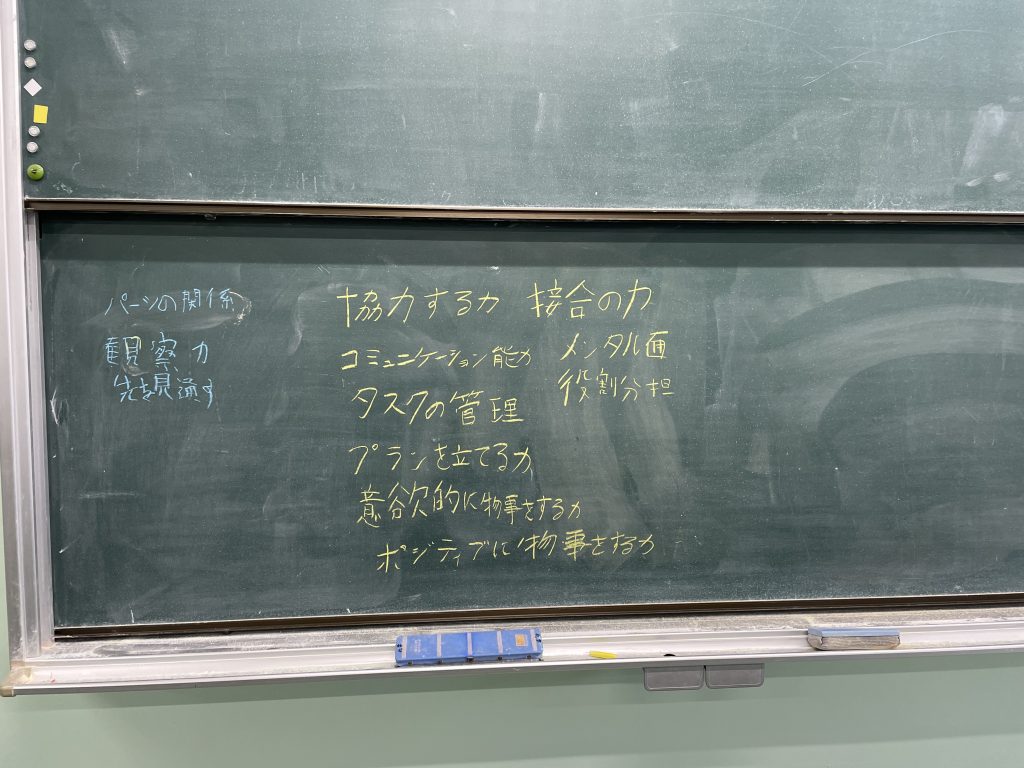 パーツの関係
観察力
先を見通す
協力する力 接合の力
コミュニケーション能力
メンタル面
タスクの管理
役割分担
プランを立てる力
意欲的に物事をする力
ポジティブに物事をする力